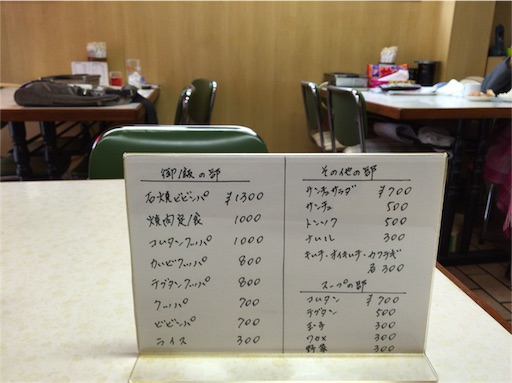 御飯の部
石焼ビビンバ ¥1300
焼肉定食 1000
コムタンクッパ 1000
カルビクッパ 800
テグタンクッパ 800
クッパ 700
ビビンバ 700
ライス 300
その他の部
サンチュサラダ ¥700
サンチュ 500
トンソク 500
ナムル 300
キムチ・オイキムチ・カクテギ
各 300
スープの部
コムタン ¥700
テグタン 500
玉子 300
ワカメ 300
野菜 300